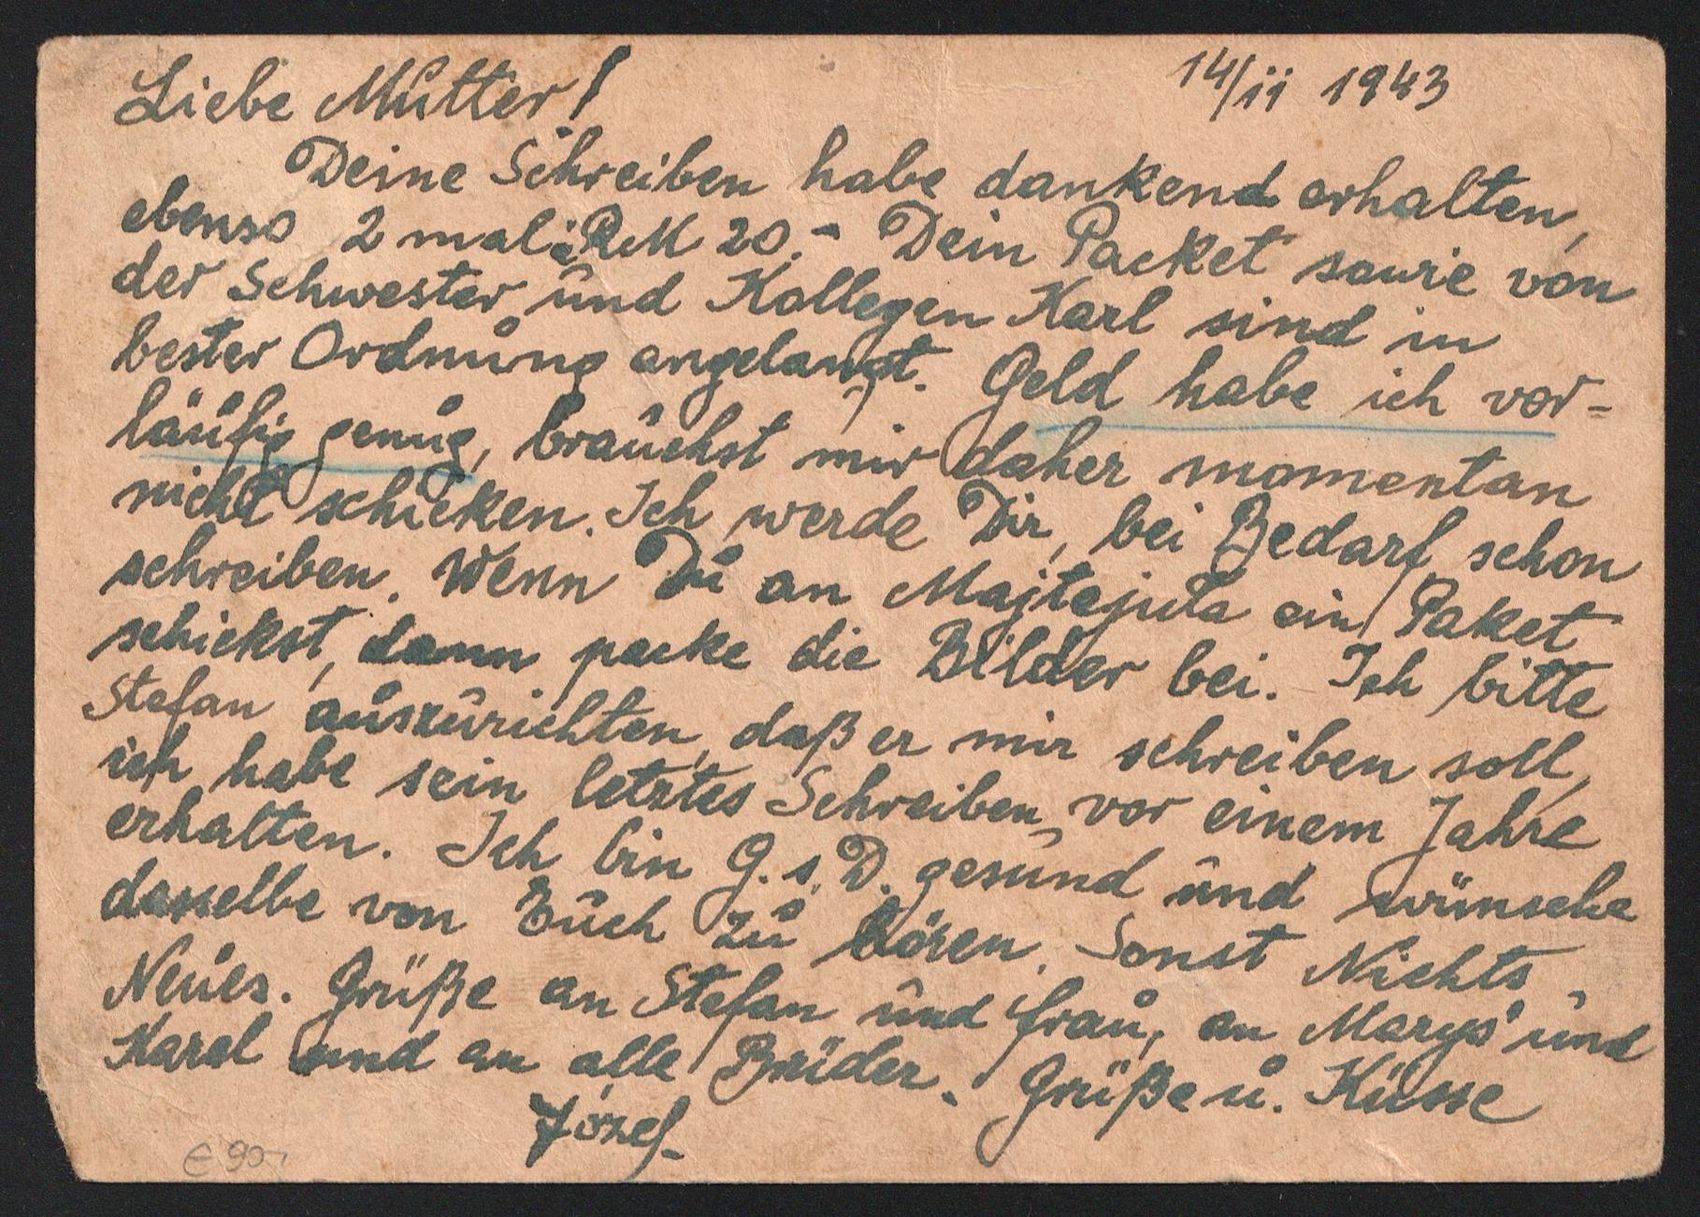 14/ii 1943
Liebe Mutter!
Deine Schreiben habe dankend erhalten,
ebenso 2 mal à RM 20.- Dein Packet sowie von
der Schwester und Kollegen Karl sind in
bester Ordnung angelangt. Geld habe ich vor=
läufig genug, brauchst mir daher momentan
nicht schicken. Ich werde Dir, bei Bedarf schon
schreiben. Wenn Du an Majtejuta ein Paket
schickst, dann packe die Bilder bei. Ich bitte
Stefan auszurichten, daß er mir schreiben soll,
ich habe sein letztes Schreiben vor einem Jahre
erhalten. Ich bin G. s. D. gesund und wünsche
dasselbe von Euch zu hören. Sonst Nichts
Neues. Grüße an Stefan und Frau, an Marys und
Karel und an alle Brüder. Grüße u. Küsse
Józef-
€ 90,-